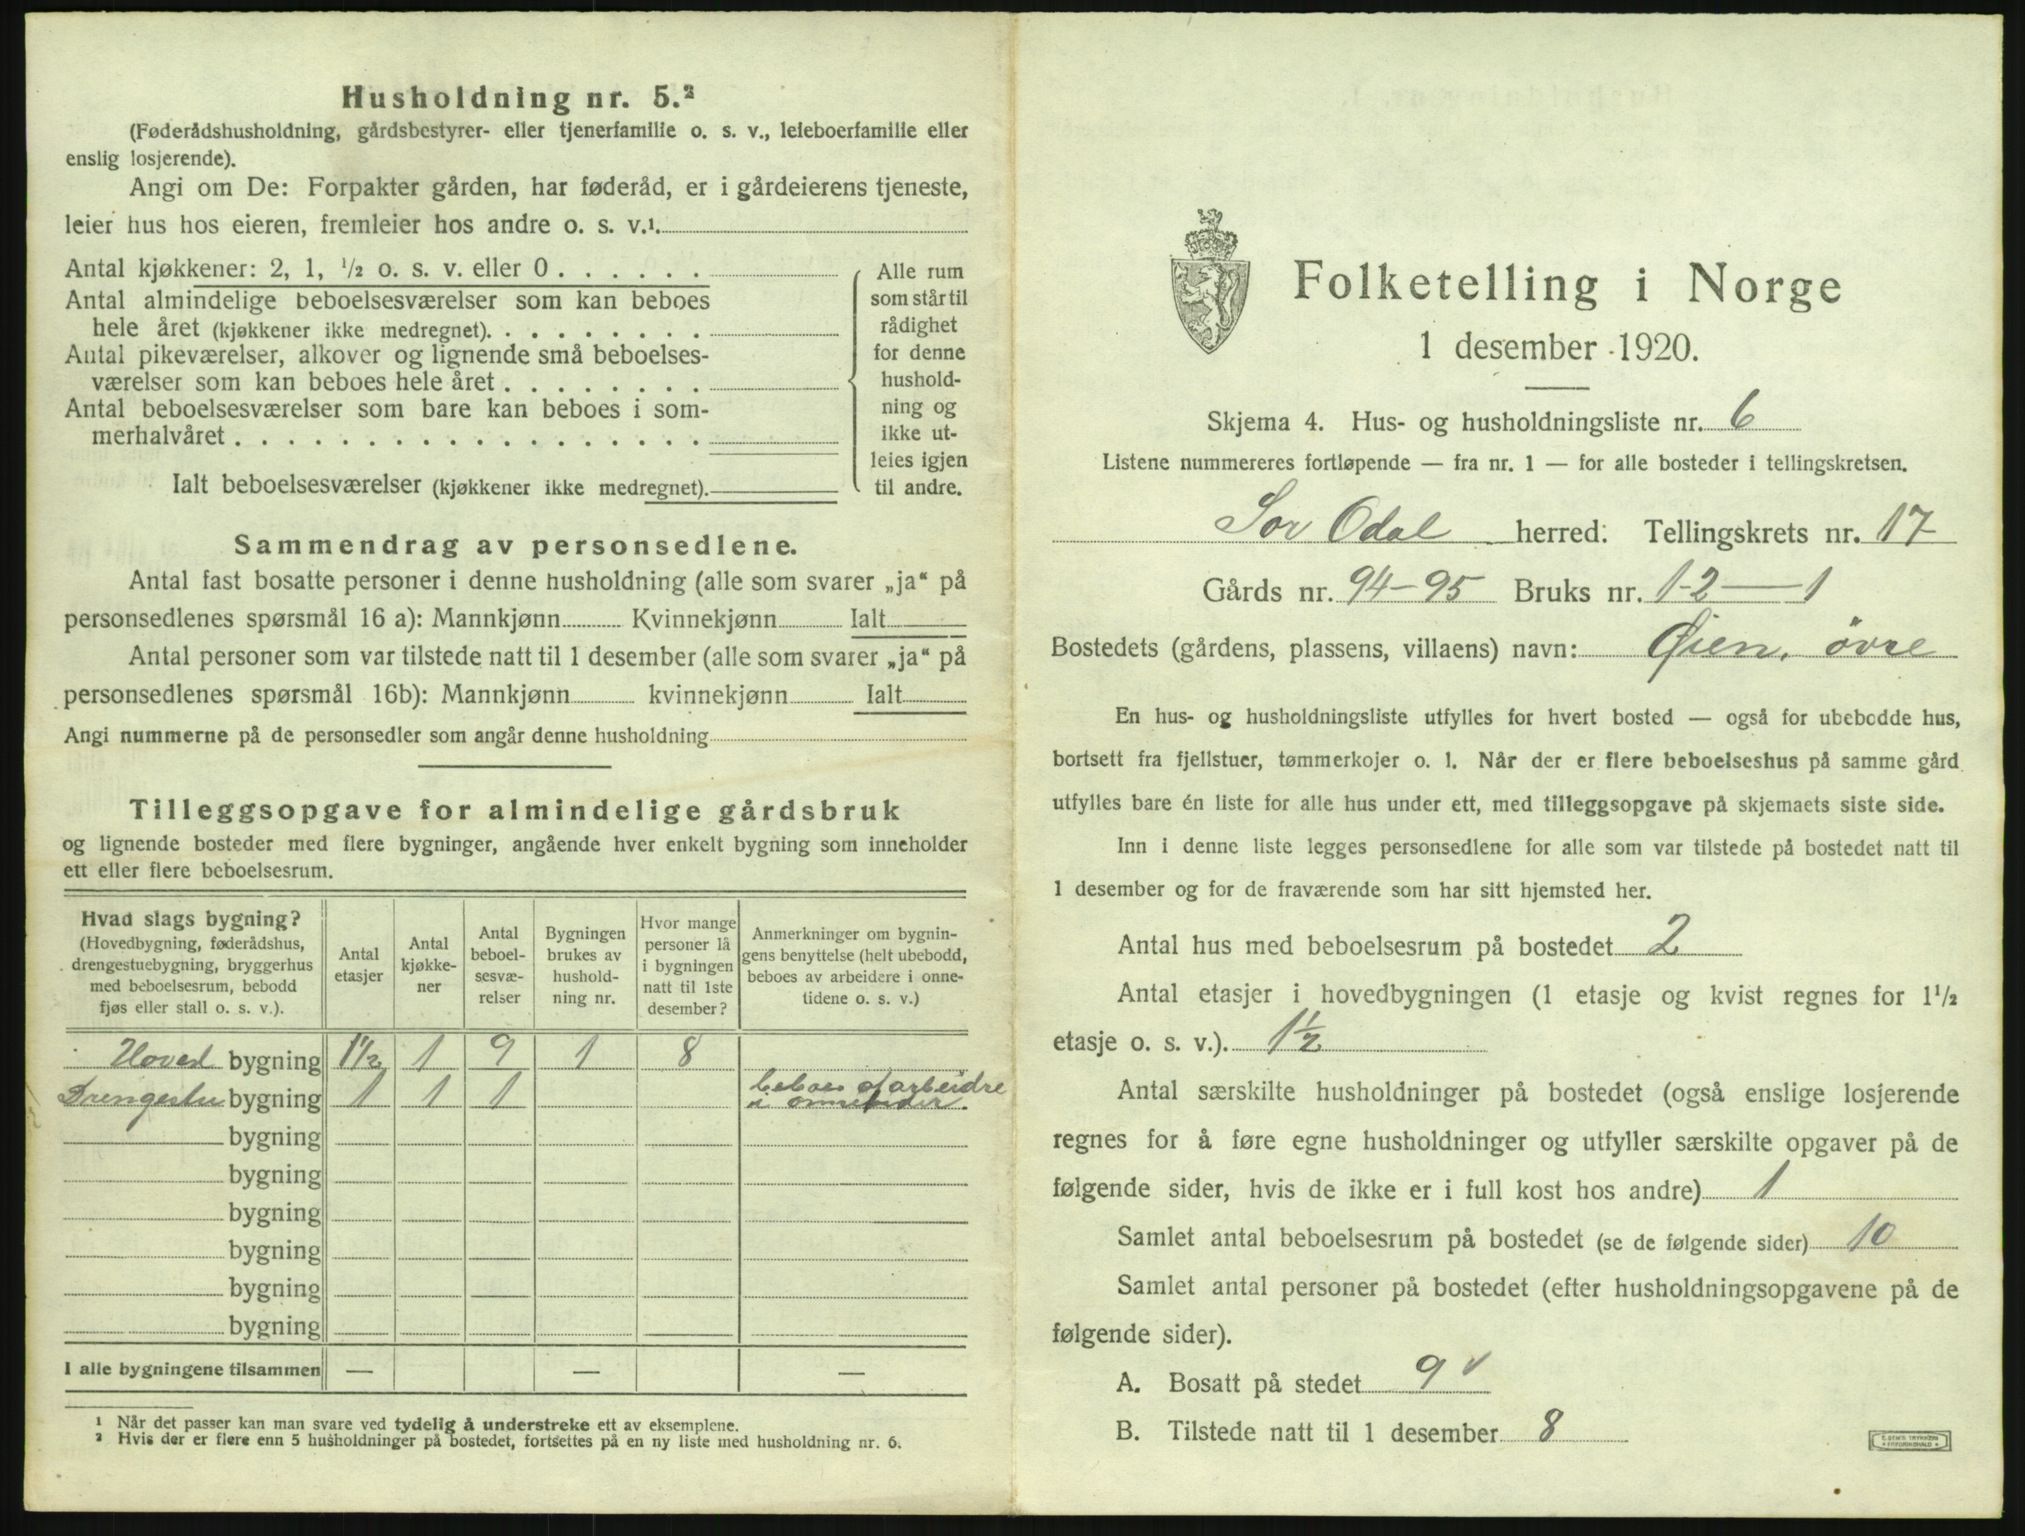 Husholdning nr. 5.²
(Føderådshusholdning, gårdsbestyrer- eller tjenerfamilie o. s. v., leieboerfamilie eller
enslig losjerende).
Angi om De: Forpakter gården, har føderåd, er i gårdeierens tjeneste,
leier hus hos eieren, fremleier hos andre o. s. v.¹.
Antal kjøkkener: 2, 1, ½ o. s. v. eller 0 . . . . . .
Antal almindelige beboelsesværelser som kan beboes
hele året (kjøkkener ikke medregnet). . . . . . . . .
Antal pikeværelser, alkover og lignende små beboelses-
værelser som kan beboes hele året . . . . . . . .
Antal beboelsesværelser som bare kan beboes i som-
merhalvåret . . . . . . . . . . . . . . . . . .
Ialt beboelsesværelser (kjøkkener ikke medregnet).
Alle rum
som står til
rådighet
for denne
hushold-
ning og
ikke ut-
leies igjen
til andre.
Sammendrag av personsedlene.
Antal fast bosatte personer i denne husholdning (alle som svarer „ja“ på
personsedlenes spørsmål 16 a): Mannkjønn Kvinnekjønn Ialt
Antal personer som var tilstede natt til 1 desember (alle som svarer „ja“ på
personsedlenes spørsmål 16b): Mannkjønn kvinnekjønn Ialt
Angi nummerne på de personsedler som angår denne husholdning
Tilleggsopgave for almindelige gårdsbruk
og lignende bosteder med flere bygninger, angående hver enkelt bygning som inneholder
ett eller flere beboelsesrum.
Hvad slags bygning?
(Hovedbygning, føderådshus,
drengestuebygning, bryggerhus
med beboelsesrum, bebodd
fjøs eller stall o. s. v.).
Antal
etasjer
Antal
kjøkke-
ner
Antal
beboel-
sesvæ-
relser
Bygningen
brukes av
hushold-
ning nr.
Hvor mange
personer lå
i bygningen
natt til 1ste
desember?
Anmerkninger om bygnin-
gens benyttelse (helt ubebodd,
beboes av arbeidere i onne-
tidene o. s. v.)
Hoved bygning 1½ 1 9 1 8
Drengestu bygning 1 1 1 beboes af arbeidre
i onnetider.
bygning
bygning
bygning
bygning
bygning
bygning
I alle bygningene tilsammen — — —
¹ Når det passer kan man svare ved tydelig å understreke ett av eksemplene.
² Hvis der er flere enn 5 husholdninger på bostedet, fortsettes på en ny liste med husholdning nr. 6.
Folketelling i Norge
1 desember 1920.
Skjema 4. Hus- og husholdningsliste nr. 6
Listene nummereres fortløpende — fra nr. 1 — for alle bosteder i tellingskretsen.
Sør Odal herred. Tellingskrets nr. 17
Gårds nr. 94-95 Bruks nr. 1-2 — 1
Bostedets (gårdens, plassens, villaens) navn: Øien, øvre
En hus- og husholdningsliste utfylles for hvert bosted — også for ubebodde hus,
bortsett fra fjellstuer, tømmerkojer o. l. Når der er flere beboelseshus på samme gård
utfylles bare én liste for alle hus under ett, med tilleggsopgave på skjemaets siste side.
Inn i denne liste legges personsedlene for alle som var tilstede på bostedet natt til
1 desember og for de fraværende som har sitt hjemsted her.
Antal hus med beboelsesrum på bostedet 2
Antal etasjer i hovedbygningen (1 etasje og kvist regnes for 1½
etasje o. s. v.). 1½
Antal særskilte husholdninger på bostedet (også enslige losjerende
regnes for å føre egne husholdninger og utfyller særskilte opgaver på de
følgende sider, hvis de ikke er i full kost hos andre) 1
Samlet antal beboelsesrum på bostedet (se de følgende sider) 10
Samlet antal personer på bostedet (efter husholdningsopgavene på de
følgende sider).
A. Bosatt på stedet 9 √
B. Tilstede natt til 1 desember 8